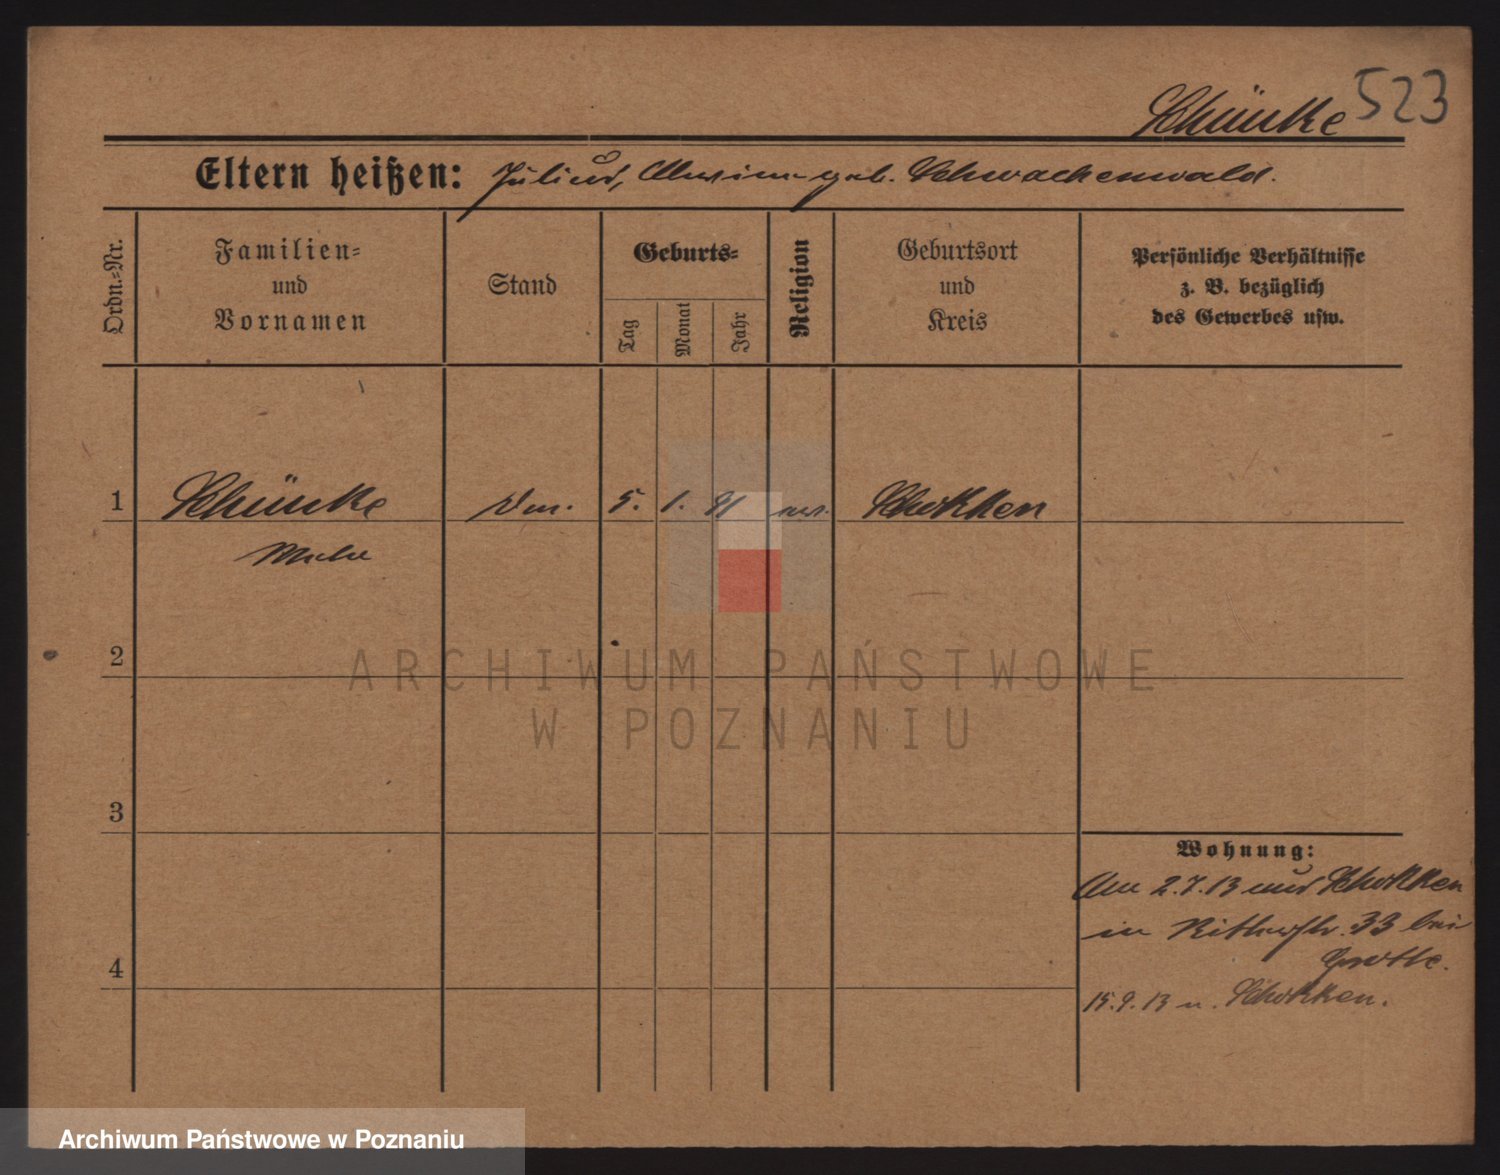 Schünke 523
Eltern heißen: Julius, geb. Schwachenwald.
Ordn.-Nr.
Familien-
und
Vornamen
Stand
Geburts-
Tag
Monat
Jahr
Religion
Geburtsort
und
Kreis
Persönliche Verhältnisse
z. B. bezüglich
des Gewerbes usw.
1 Schünke 5. 1. 91 ev. Schokken
2
3
4
Wohnung:
Am 2.7.13 aus Schokken
in Ritterstr. 33 bei
15.9.13 n. Schokken.
ARCHIWUM PAŃSTWOWE
W POZNANIU
Archiwum Państwowe w Poznaniu